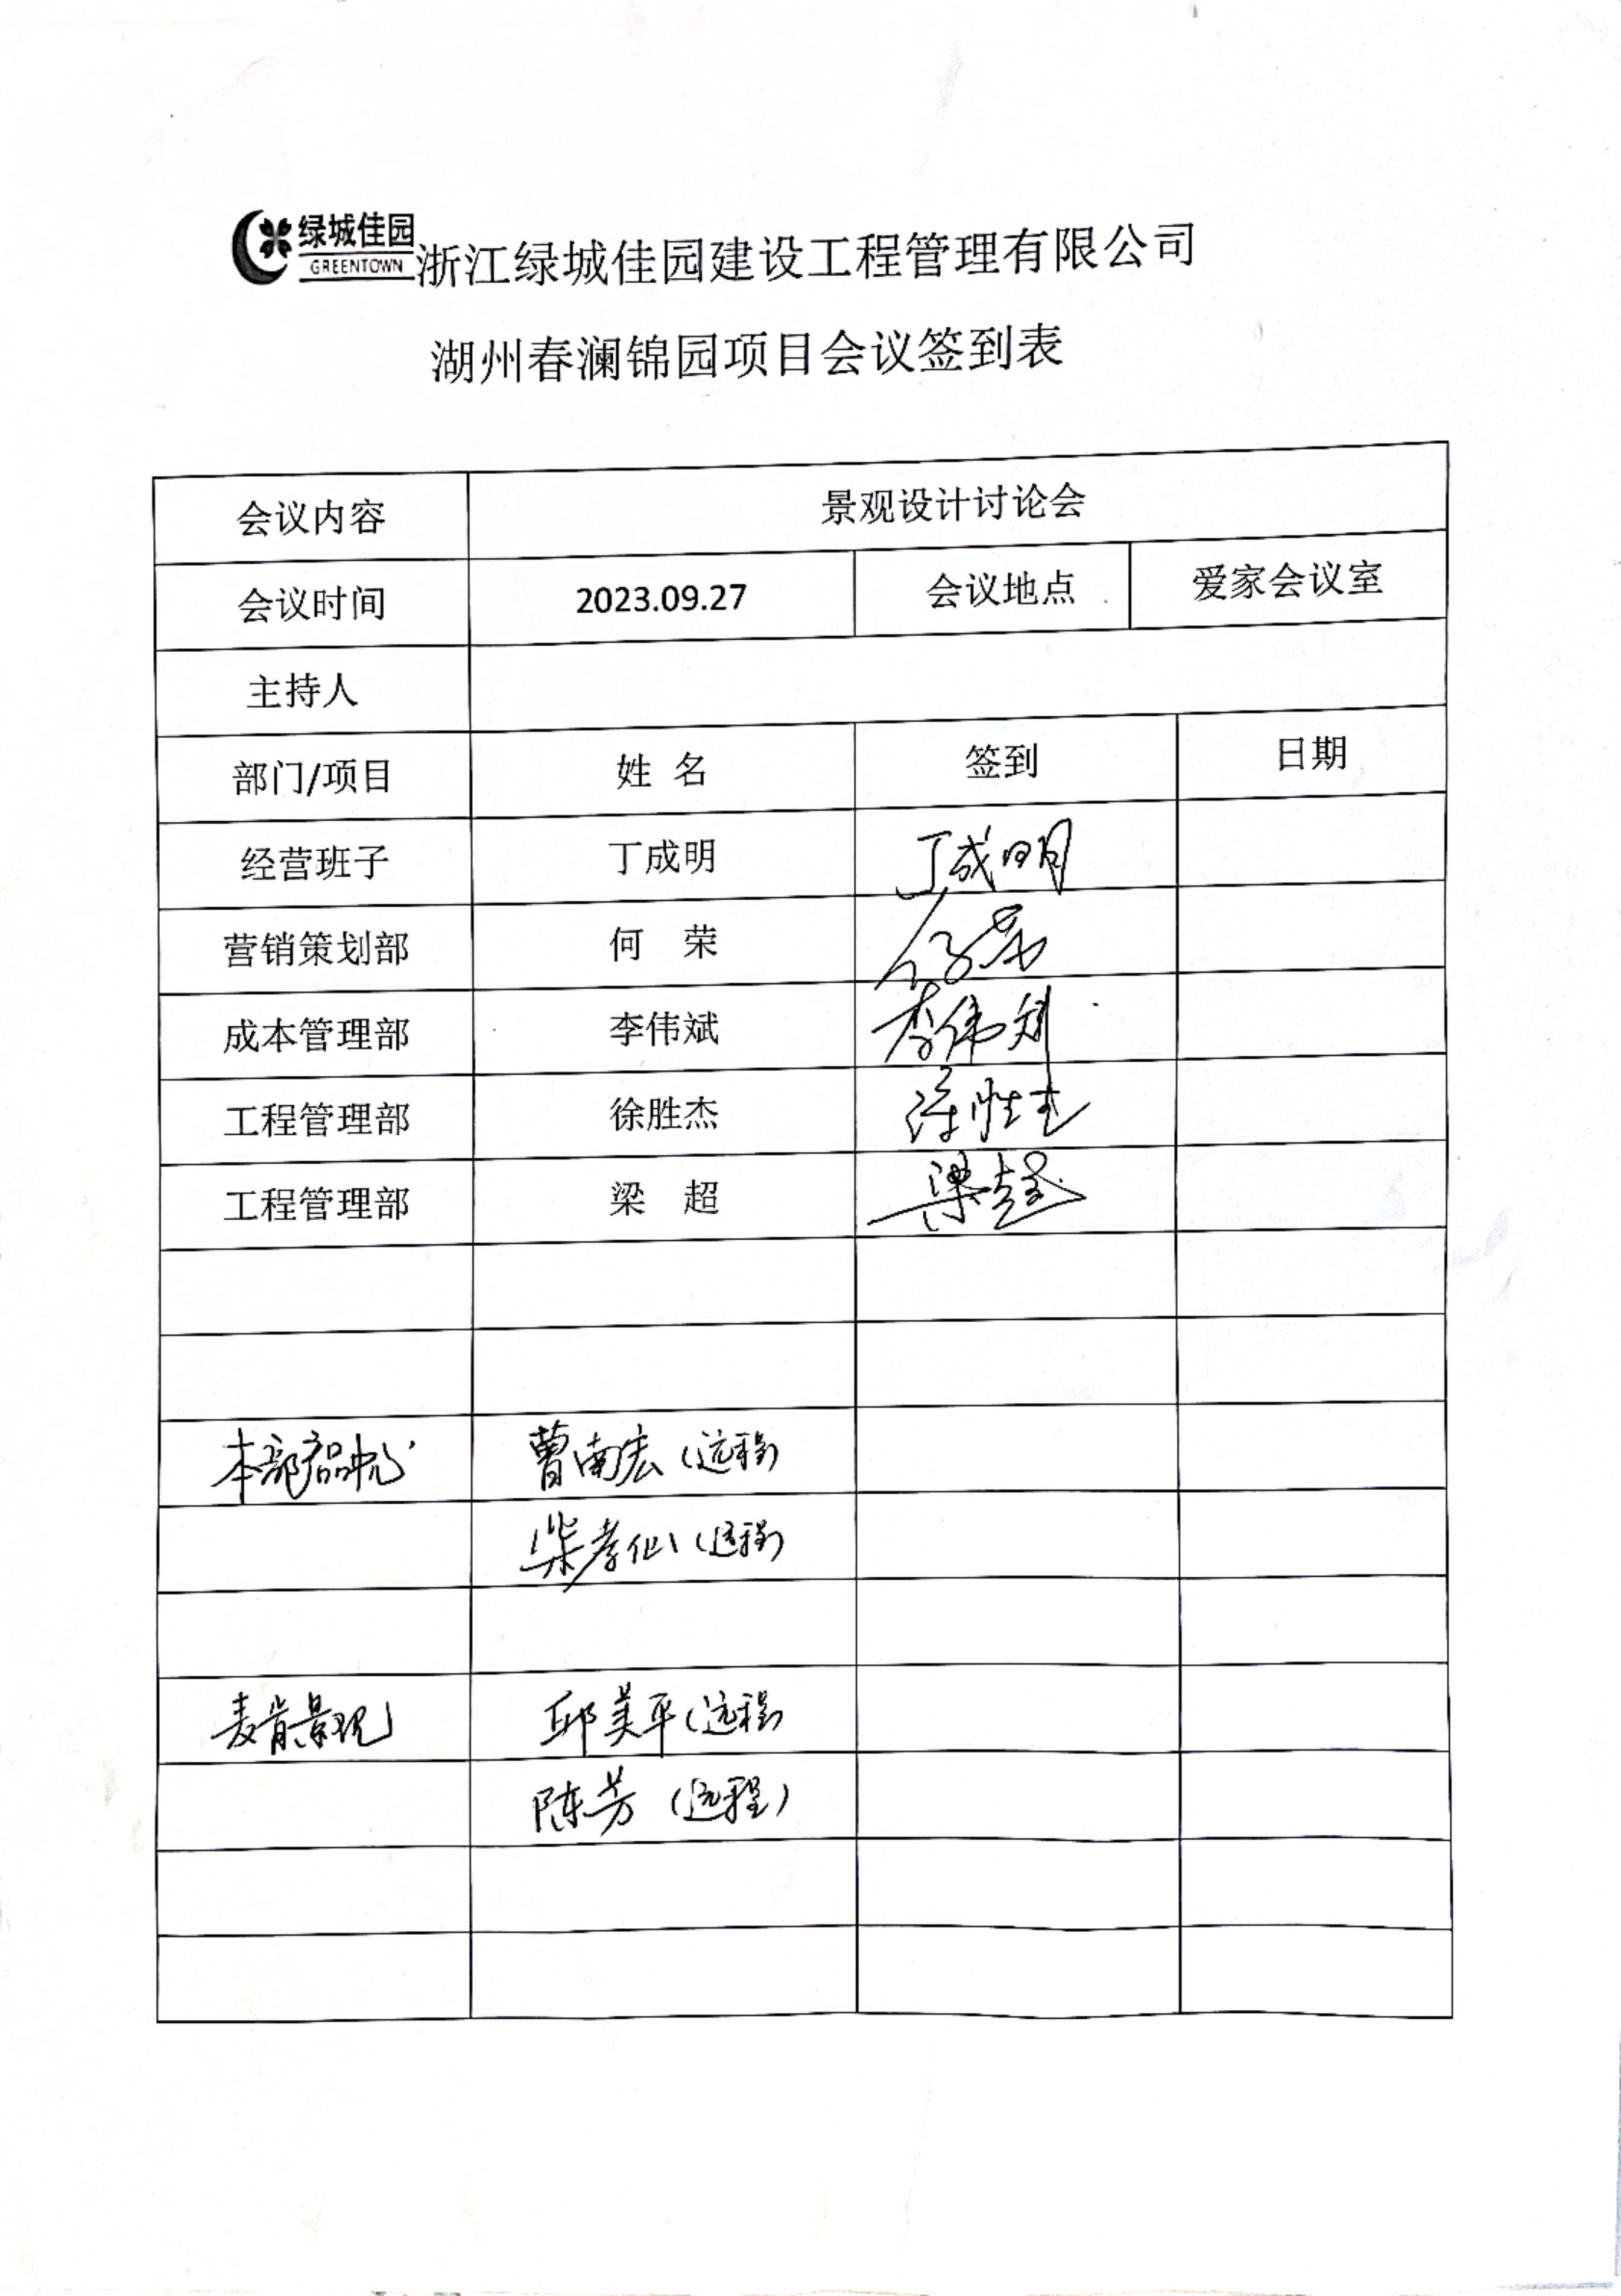 绿城佳园
GREENTOWN
浙江绿城佳园建设工程管理有限公司
湖州春澜锦园项目会议签到表
会议内容 景观设计讨论会
会议时间 2023.09.27 会议地点 爱家会议室
主持人
部门/项目 姓 名 签到 日期
经营班子 丁成明 丁成明
营销策划部 何 荣 何荣
成本管理部 李伟斌 李伟斌
工程管理部 徐胜杰 徐胜杰
工程管理部 梁 超 梁超
本部产品中心 曹南宏（远程）
柴孝仙（远程）
麦肯景观 邱美平（远程）
陈芳（远程）